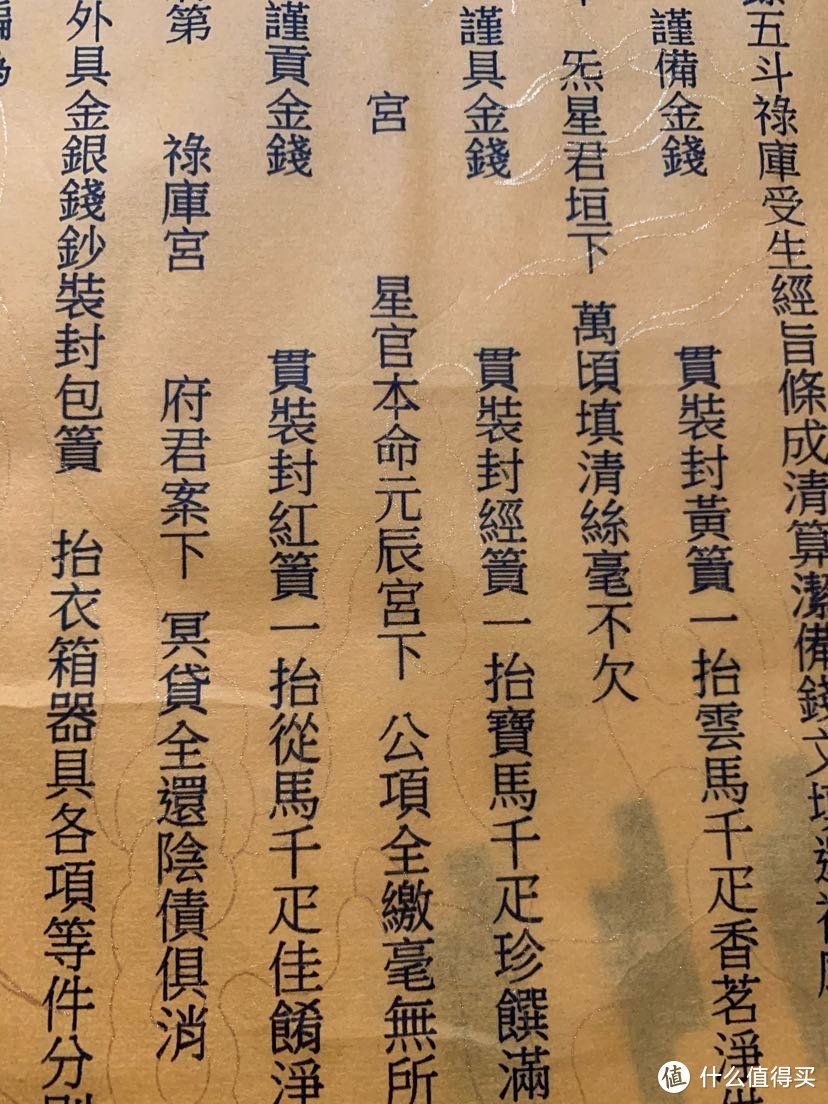 五斗祿庫受生經旨條成清算潔備錢文填還祿庫
謹備金錢 貫裝封黃簣一抬雲馬千疋香茗淨供
炁星君垣下 萬頃填清絲毫不欠
謹具金錢 貫裝封經簣一抬寶馬千疋珍饌滿
宮 星官本命元辰宮下 公項全繳毫無所
謹貢金錢 貫裝封紅簣一抬從馬千疋佳餚淨
第 祿庫宮 府君案下 冥貸全還陰債俱消
外具金銀錢鈔裝封包簣 抬衣箱器具各項等件分別
值 什么值得买